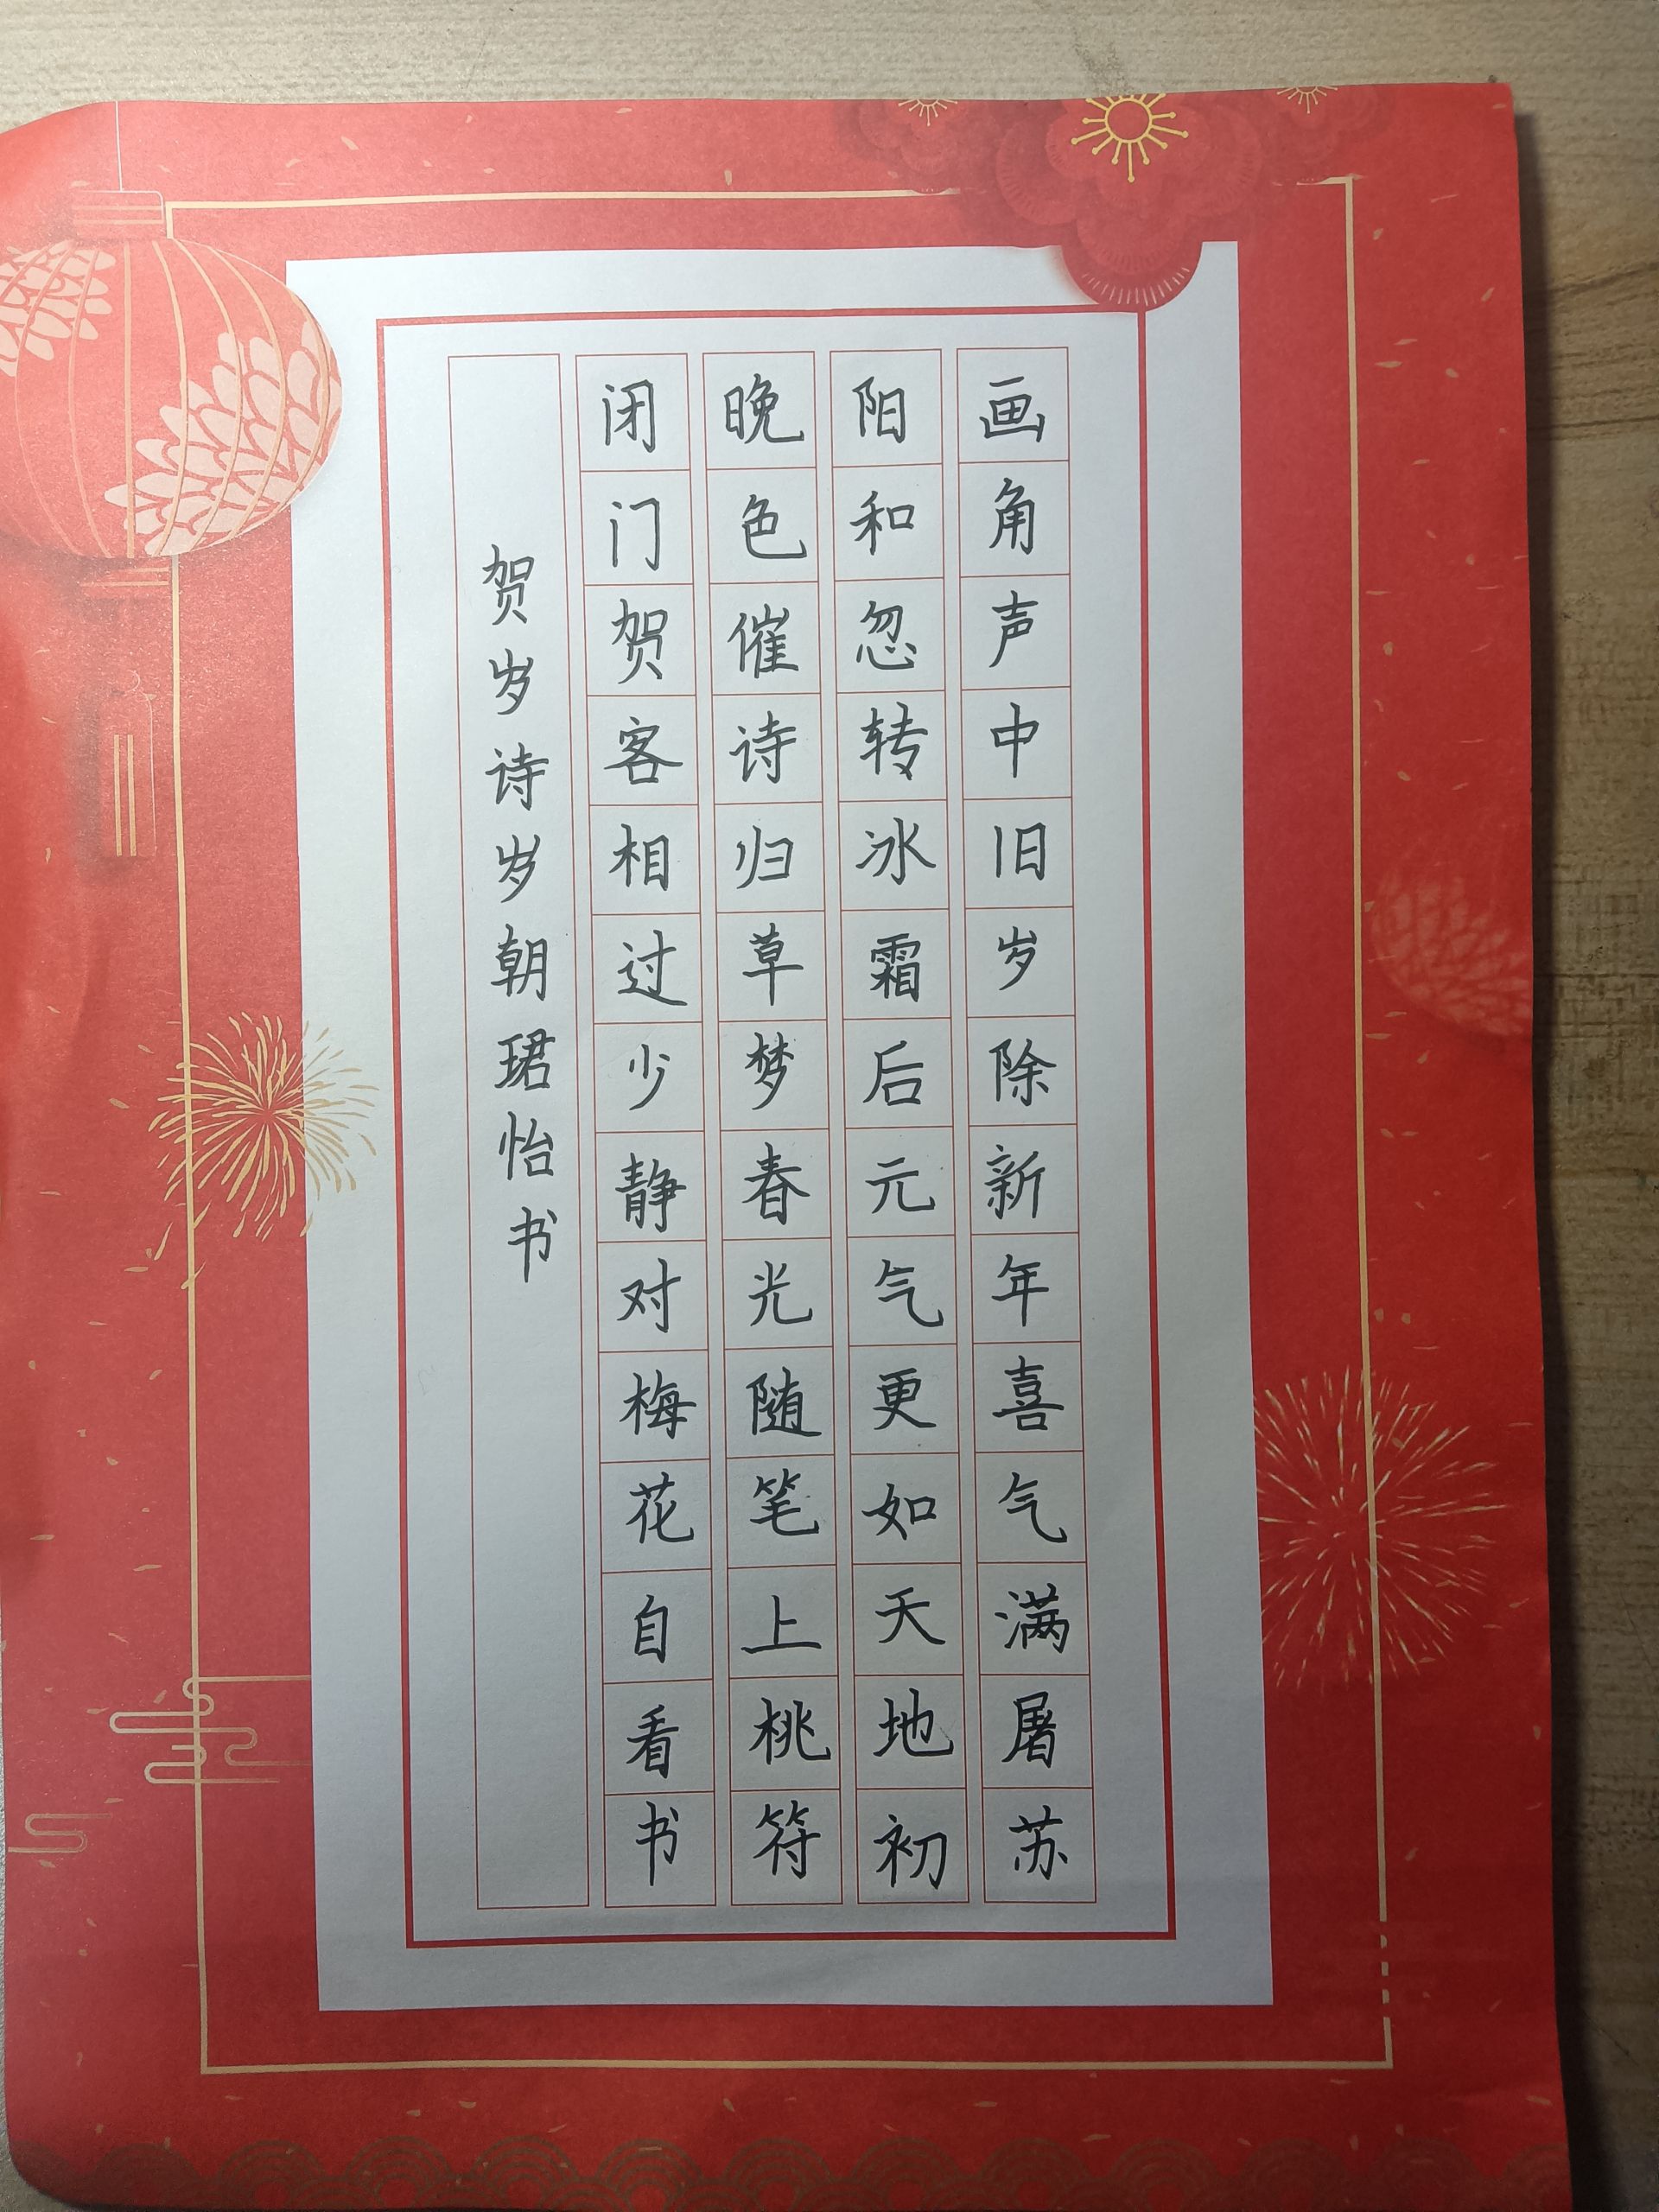 画角声中旧岁除新年喜气满屠苏
阳和忽转冰霜后元气更如天地初
晚色催诗归草梦春光随笔上桃符
闭门贺客相过少静对梅花自看书
贺岁诗岁朝珺怡书